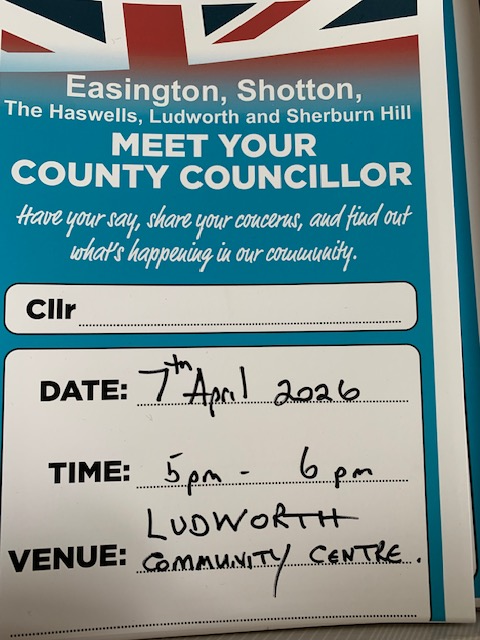 Easington, Shotton,
The Haswells, Ludworth and Sherburn Hill
MEET YOUR
COUNTY COUNCILLOR
Have your say, share your concerns, and find out
what's happening in our community.
Cllr
DATE: 7th April 2026
TIME: 5pm - 6pm
LUDWORTH
VENUE: COMMUNITY CENTRE.